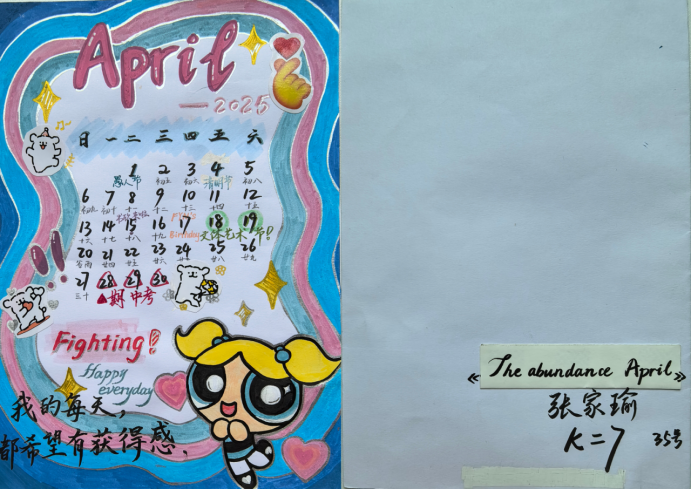 April
—2025
日 一 二 三 四 五 六
1 2 3 4 5
愚人节 初五 初六 清明节 初八
6 7 8 9 10 11 12
初九 初十 十一 十二 十三 十四 十五
13 14 15 16 17 18 19
十六 十七 十八 十九 Birthday 文体艺术节!
20 21 22 23 24 25 26
谷雨 廿四 廿五 廿六 廿七 廿八 廿九
27 28 29 30
三十 ▲期中考
Fighting!
Happy
everyday
我的每天,
都希望有获得感.
《The abundance April》
张家瑜
K=7 35号